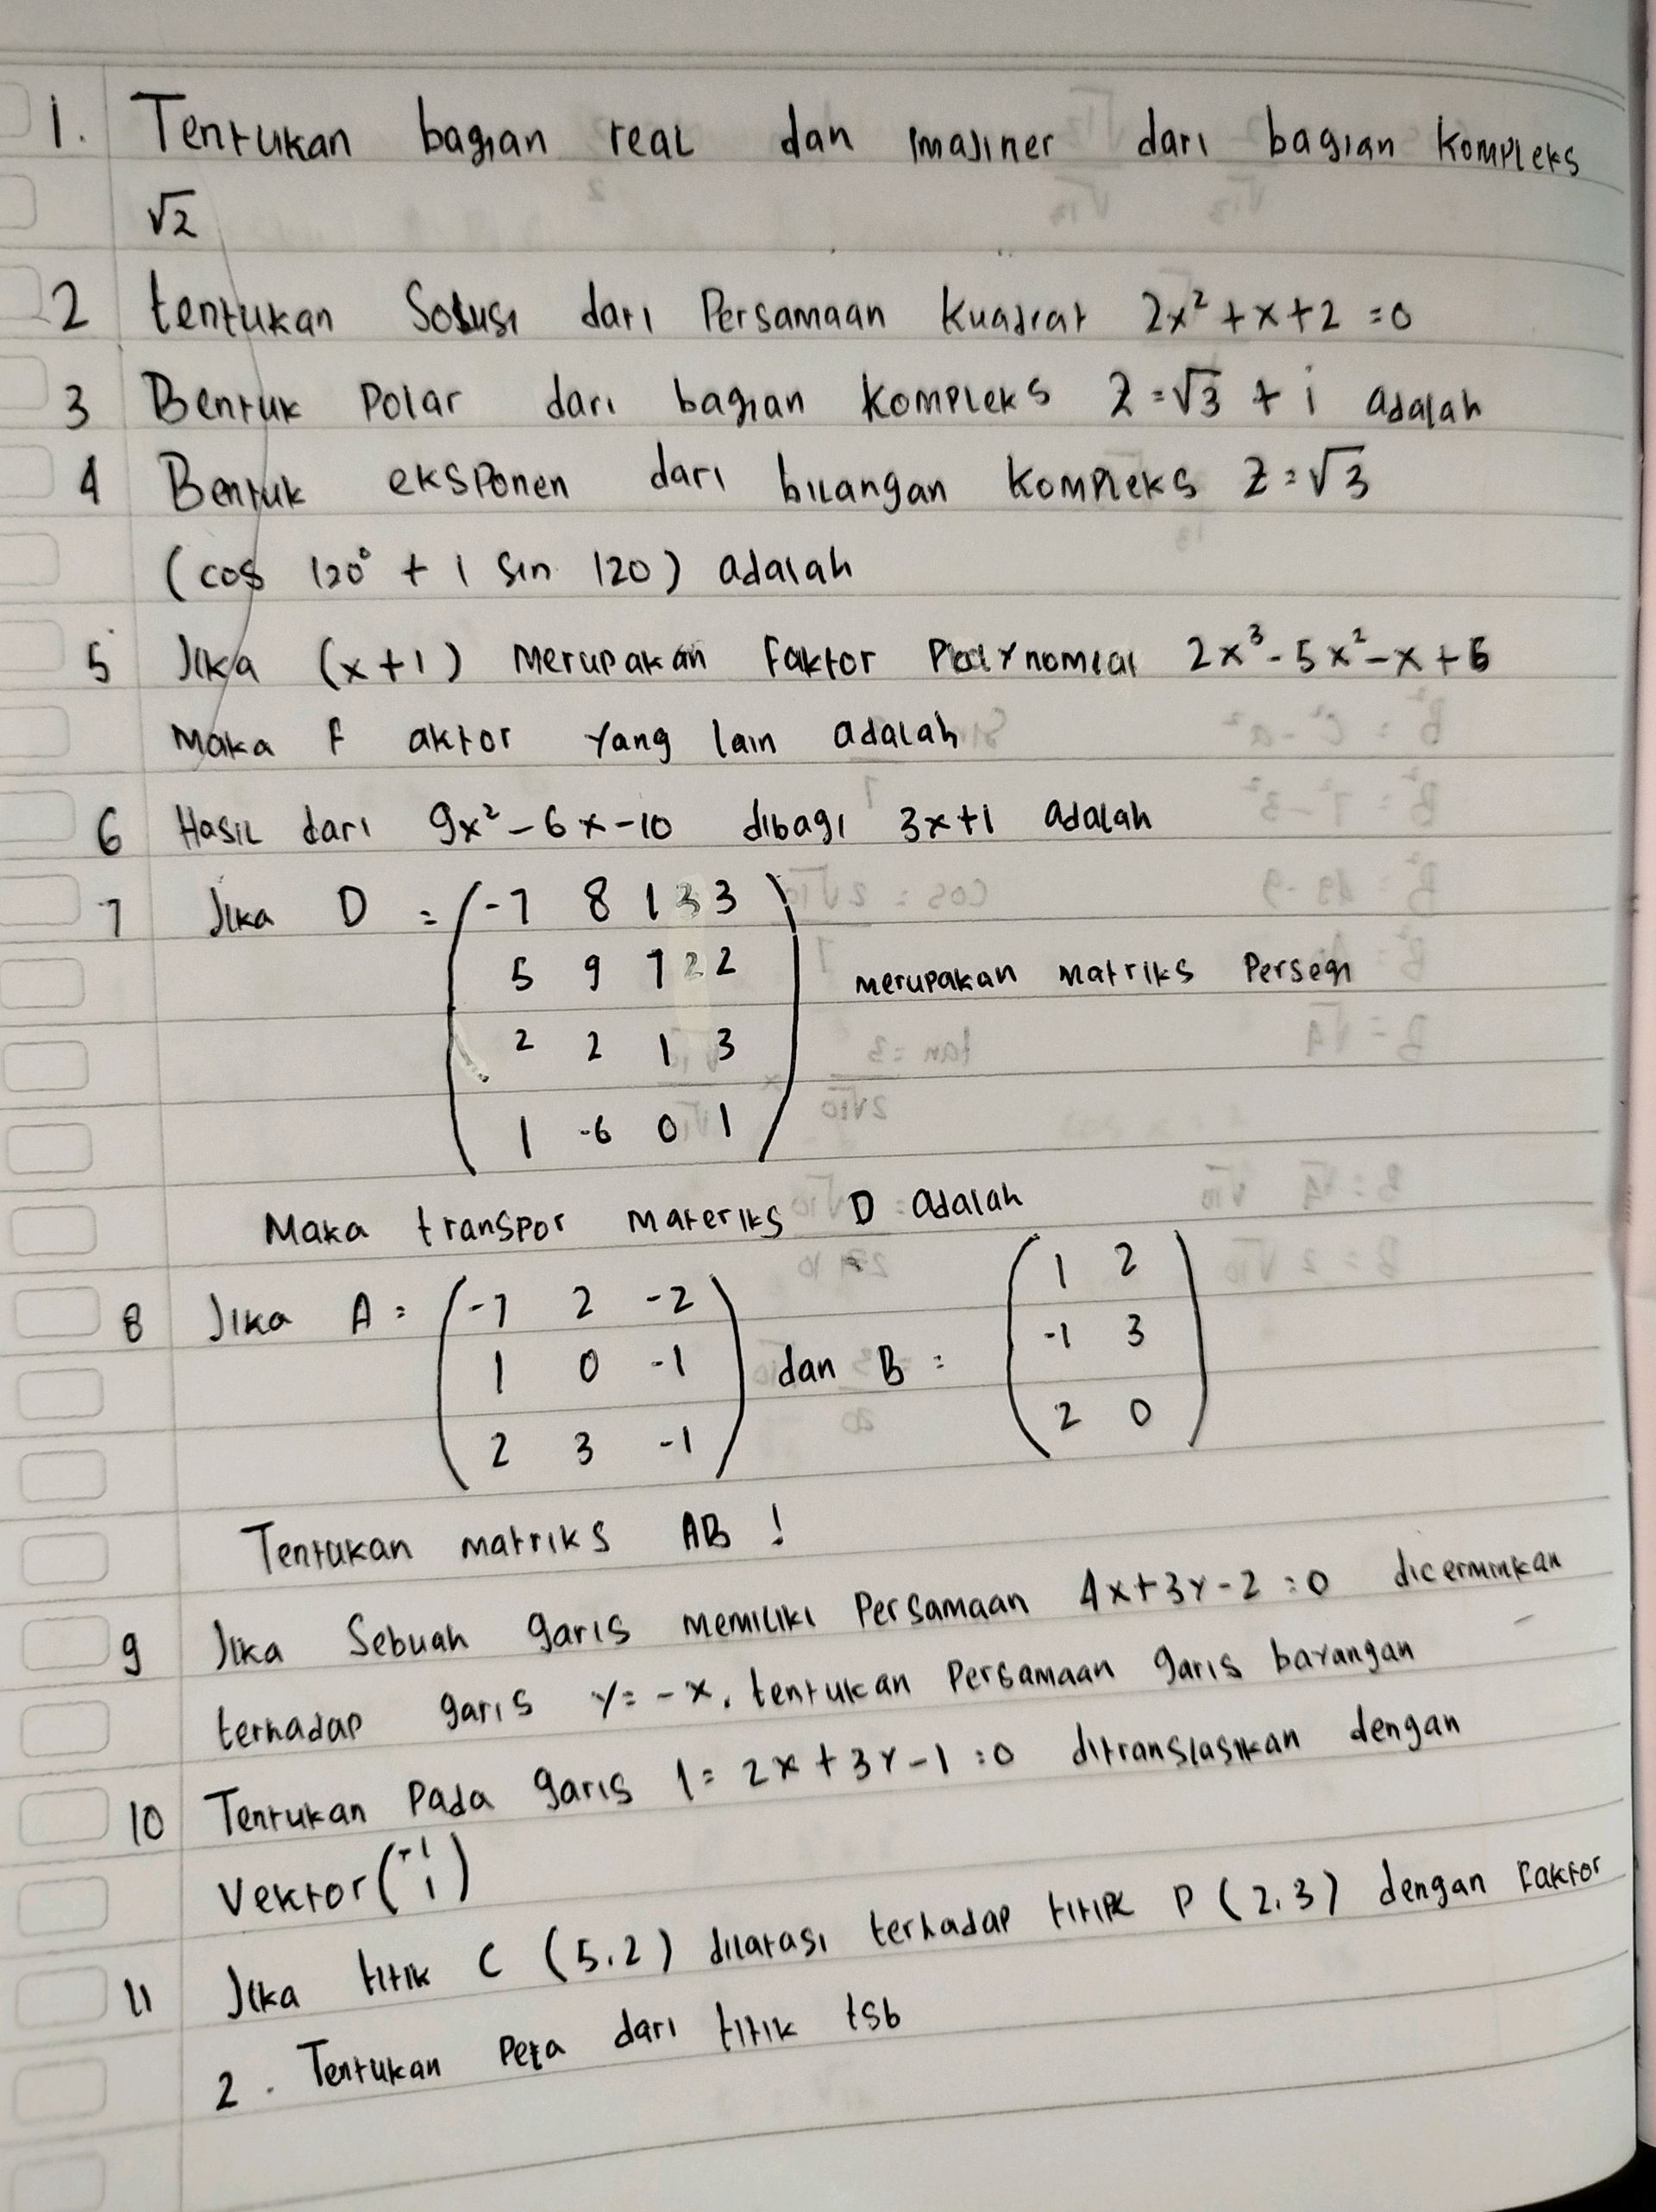 1. Tentukan bagian real dan imajiner dari bagian kompleks
√2
2 tentukan Solusi dari Persamaan Kuadrat 2x² + x + 2 = 0
3 Bentuk Polar dari bagian kompleks z = √3 + i adalah
4 Bentuk eksponen dari bilangan kompleks z = √3
(cos 120° + i sin 120) adalah
5 Jika (x+1) merupakan faktor Polynomial 2x³ - 5x² - x + 6
Maka F aktor yang lain adalah
6 Hasil dari 9x² - 6x - 10 dibagi 3x+1 adalah
7 Jika D = (-7 8 1 3
5 9 7 2 merupakan matriks Persegi
2 2 1 3
1 -6 0 1)
Maka transpor materiks D adalah
8 Jika A = (-7 2 -2 dan B = (1 2
1 0 -1 -1 3
2 3 -1) 2 0)
Tentukan matriks AB !
9 Jika Sebuah garis memiliki Persamaan 4x + 3y - 2 = 0 dicerminkan
terhadap garis y = -x. tentukan Persamaan garis bayangan
10 Tentukan Pada garis l = 2x + 3y - 1 = 0 ditranslasikan dengan
Vektor (-1 1)
11 Jika titik C (5.2) dilatasi terhadap titik P (2.3) dengan Faktor
2. Tentukan Peta dari titik tsb